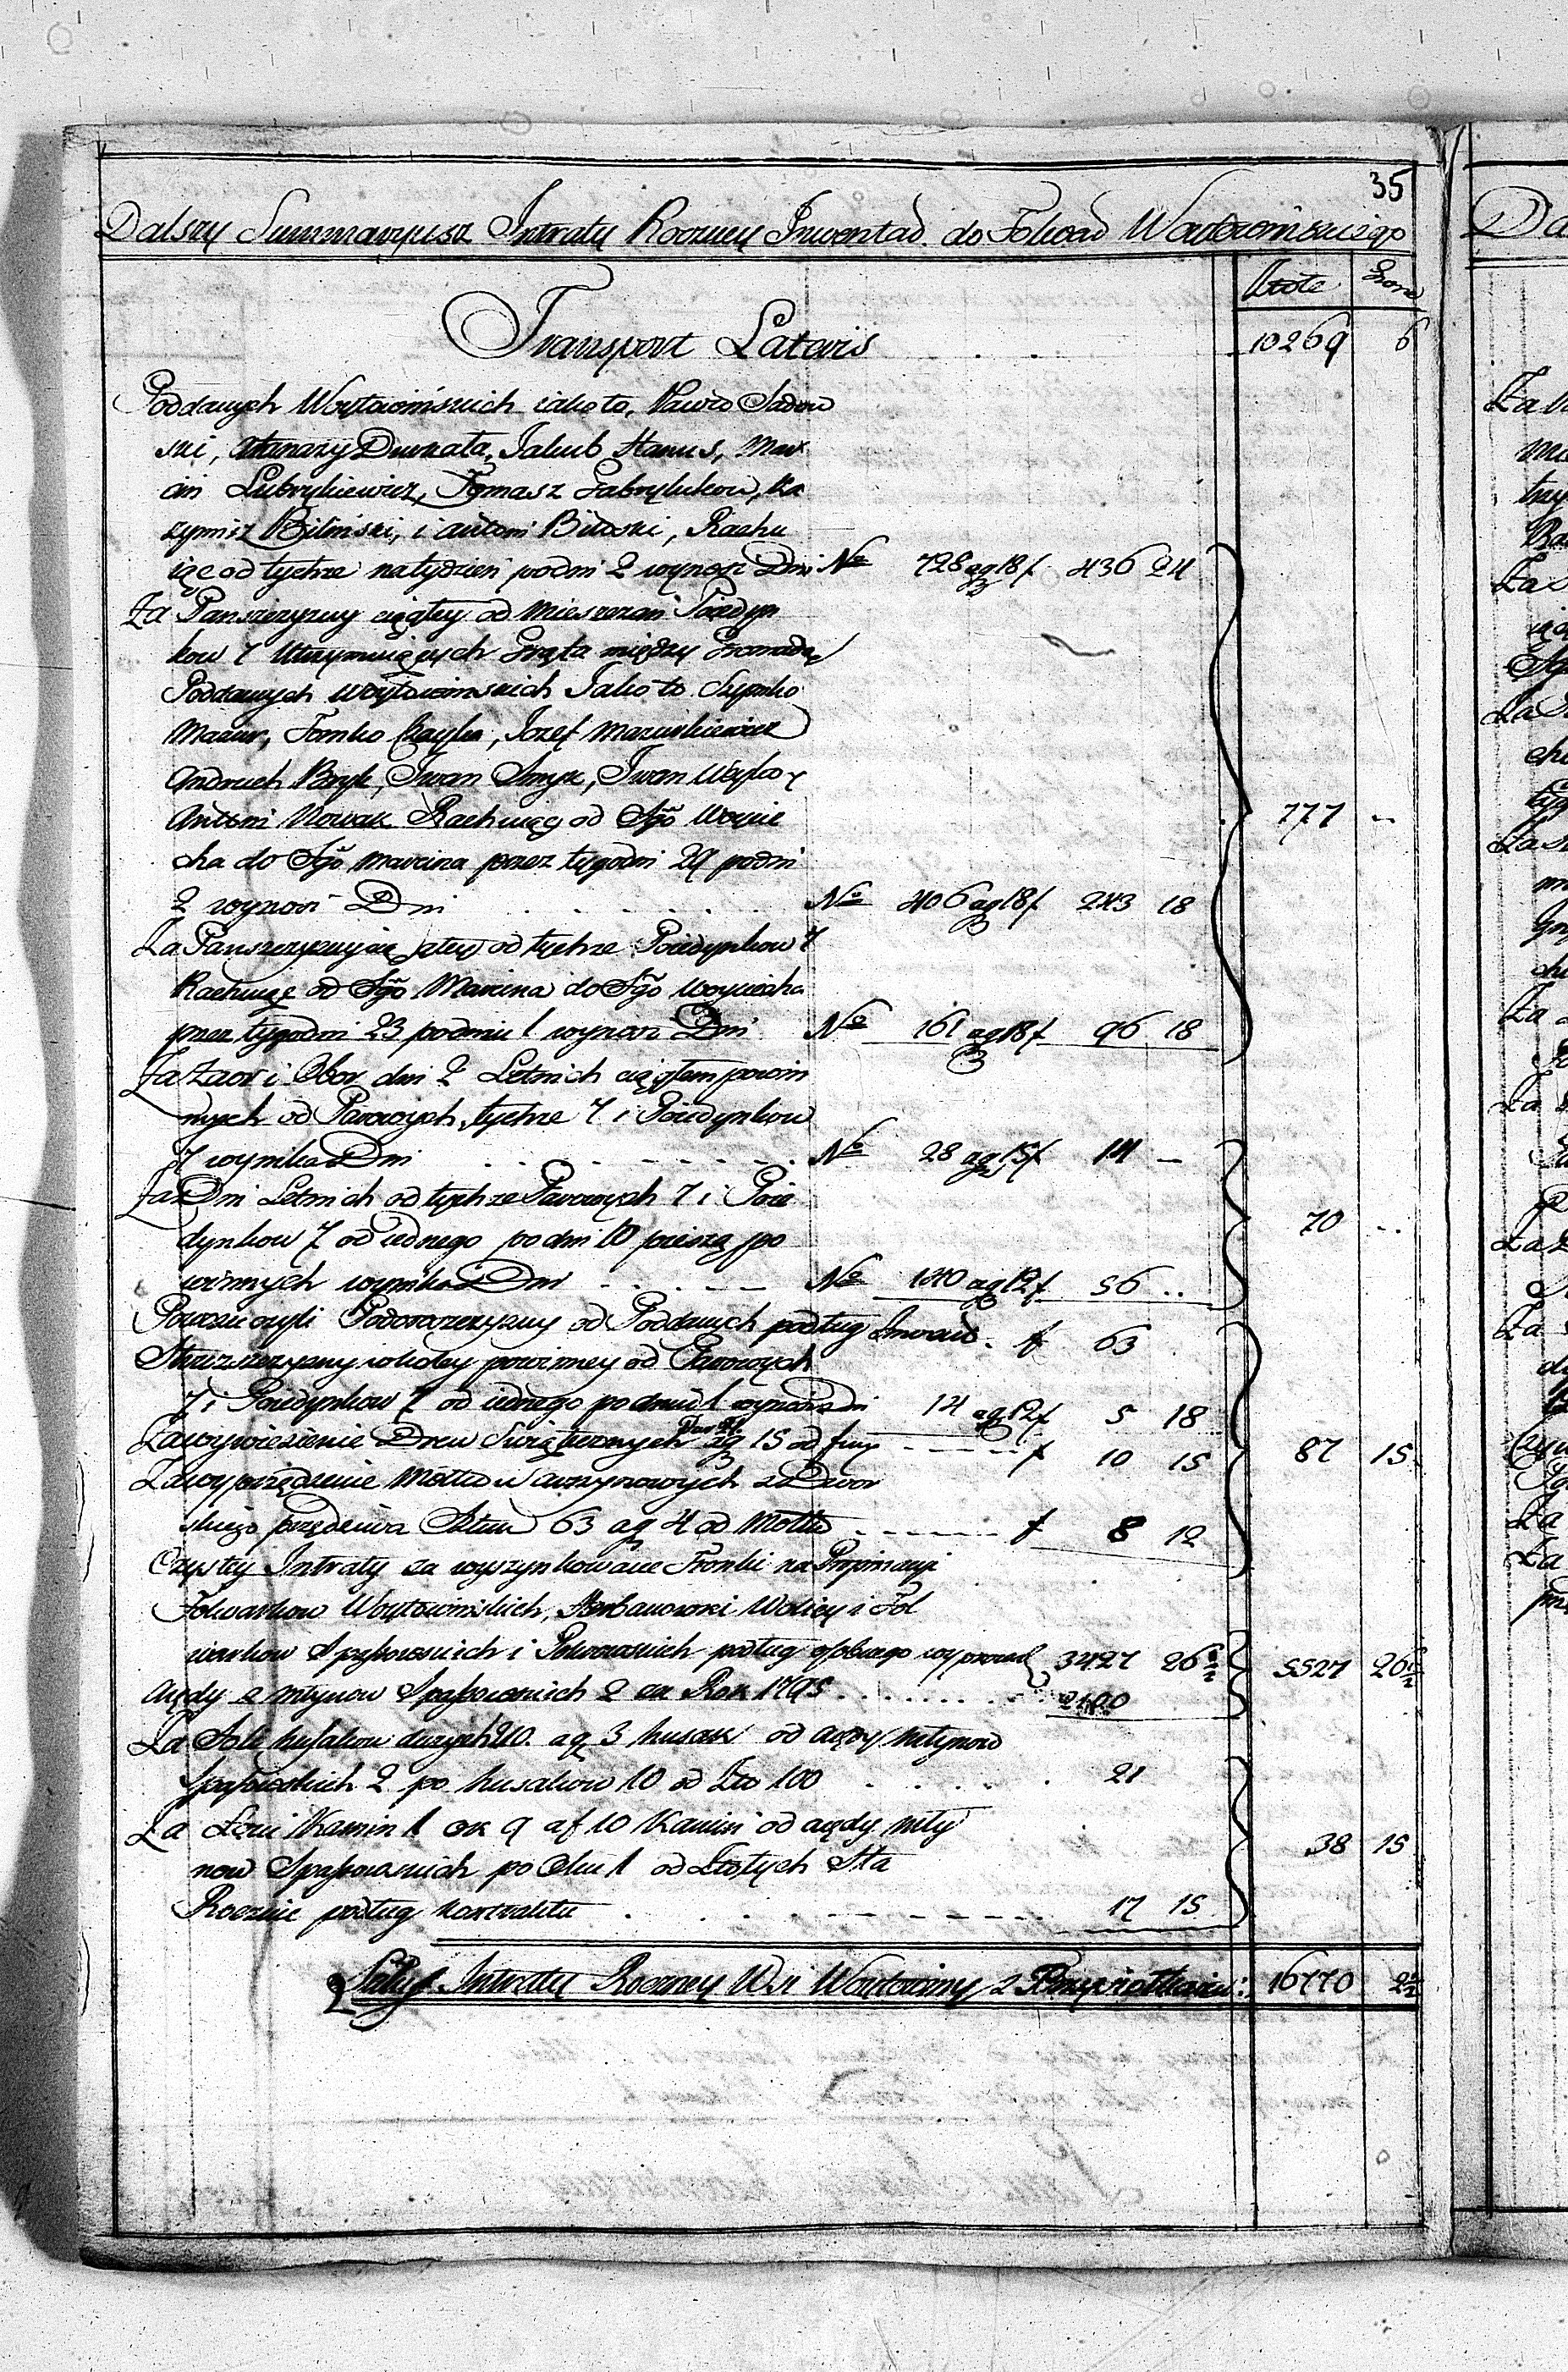 35
Dalszy Summaryusz Intraty Roczney Inwentad. do Folwad Woytowinskiego
Złote Grosze
Transport Lateris . . . 10269 6
Poddanych Woytowinskich iako to, Pawło Sadow
ski, Atanazy Duszata, Jakub Hanus, Mar
cin Lubrykiewicz, Tomasz Gabrylukow, Ka
zymirz Bilinski, i Antoni Bilinski, Rachu
iąc od tychże na tydzień po dni 2 wynosi Dni No 728 ag 18 f 436 24
Za Panszczyzny ciągłey od Mieszczan Poiedyn
kow 7 Utrzymuiących Grąta między Gromadą
Poddanych Woytowinskich Jako to Szymko
Mazur, Fomko Czayka, Jozef Mazurkiewicz
Andruch Bryk, Iwan Smyk, Iwan Woyko y
Antoni Nowak Rachuiąc od Sgo Woycie
cha do Sgo Marcina przez tygodni 29 po dni
2 wynosi Dni . . . . . No 406 ag 18 f 243 18
777 --
Za Panszczyzny od tychże Poiedynkow 7
Rachuiąc od Sgo Marcina do Sgo Woyciecha
przez tygodni 23 po dniu 1 wynosi Dni No 161 ag 18 f 96 18
Za Zaor i Obor dni 2 Letnich ciągłem powin
nych od Parowych tychże 7 i Poiedynkow
7 wynika Dni . . - - - - No 28 ag 15 f 14 —
Za Dni Letnich od tychże Parowych 7 i Poie
dynkow 7 od iednego po dni 10 pieszą po
winnych wynika Dni - - - - No 140 ag 12 f 56 ..
70 --
Powozu czyli Podorozczyzny od Poddanych podług Inwent. f 63
Stroższczyzny koleyney powinney od Parowych
7 i Poiedynkow 7 od iednego po dniu 1 wynosi Dni 14 ag 12 f 5 18
Za wywiezienie Drew Swiątecznych ag 15 od fury - - - - f 10 15
87 15
Za wyprzędzenie Motkow z Dwor
skiego przędziwa Sztuk 63 ag 4 od Motka - - - - f 8 12
Czystey Intraty za wyszynkowane Trunki na Propinacyi
Folwarkow Woytowinskich, Wolicy i Fol
warkow Spasowskich i podług osobnego 3427 26 1/2
5527 26 1/2
Arędy z Młynow Spasowskich 2 za Rok 1795 . . . . . . . 2100
Za Soli husakow dużych 210. ag 3 husak od arędy Młynow
Spasowskich 2 po husakow 10 od Zło 100 . . . . . 21
Za Łoiu Kamin 1 9 af 10 Kamin od arędy Mły
now Spasowskich po 1 od Złotych Sta
38 15
Rocznie podług Kontraktu . . . - - - - 17 15
Intraty Roczney Wsi Woytowiny z : 16770 2 1/2